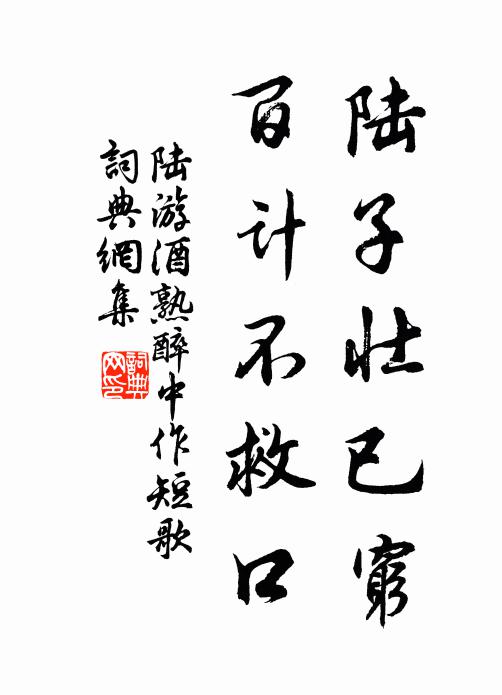 陆子壮已窮
百计不救口
陆游酒熟醉中作短歌
詞典網集
詞典网印